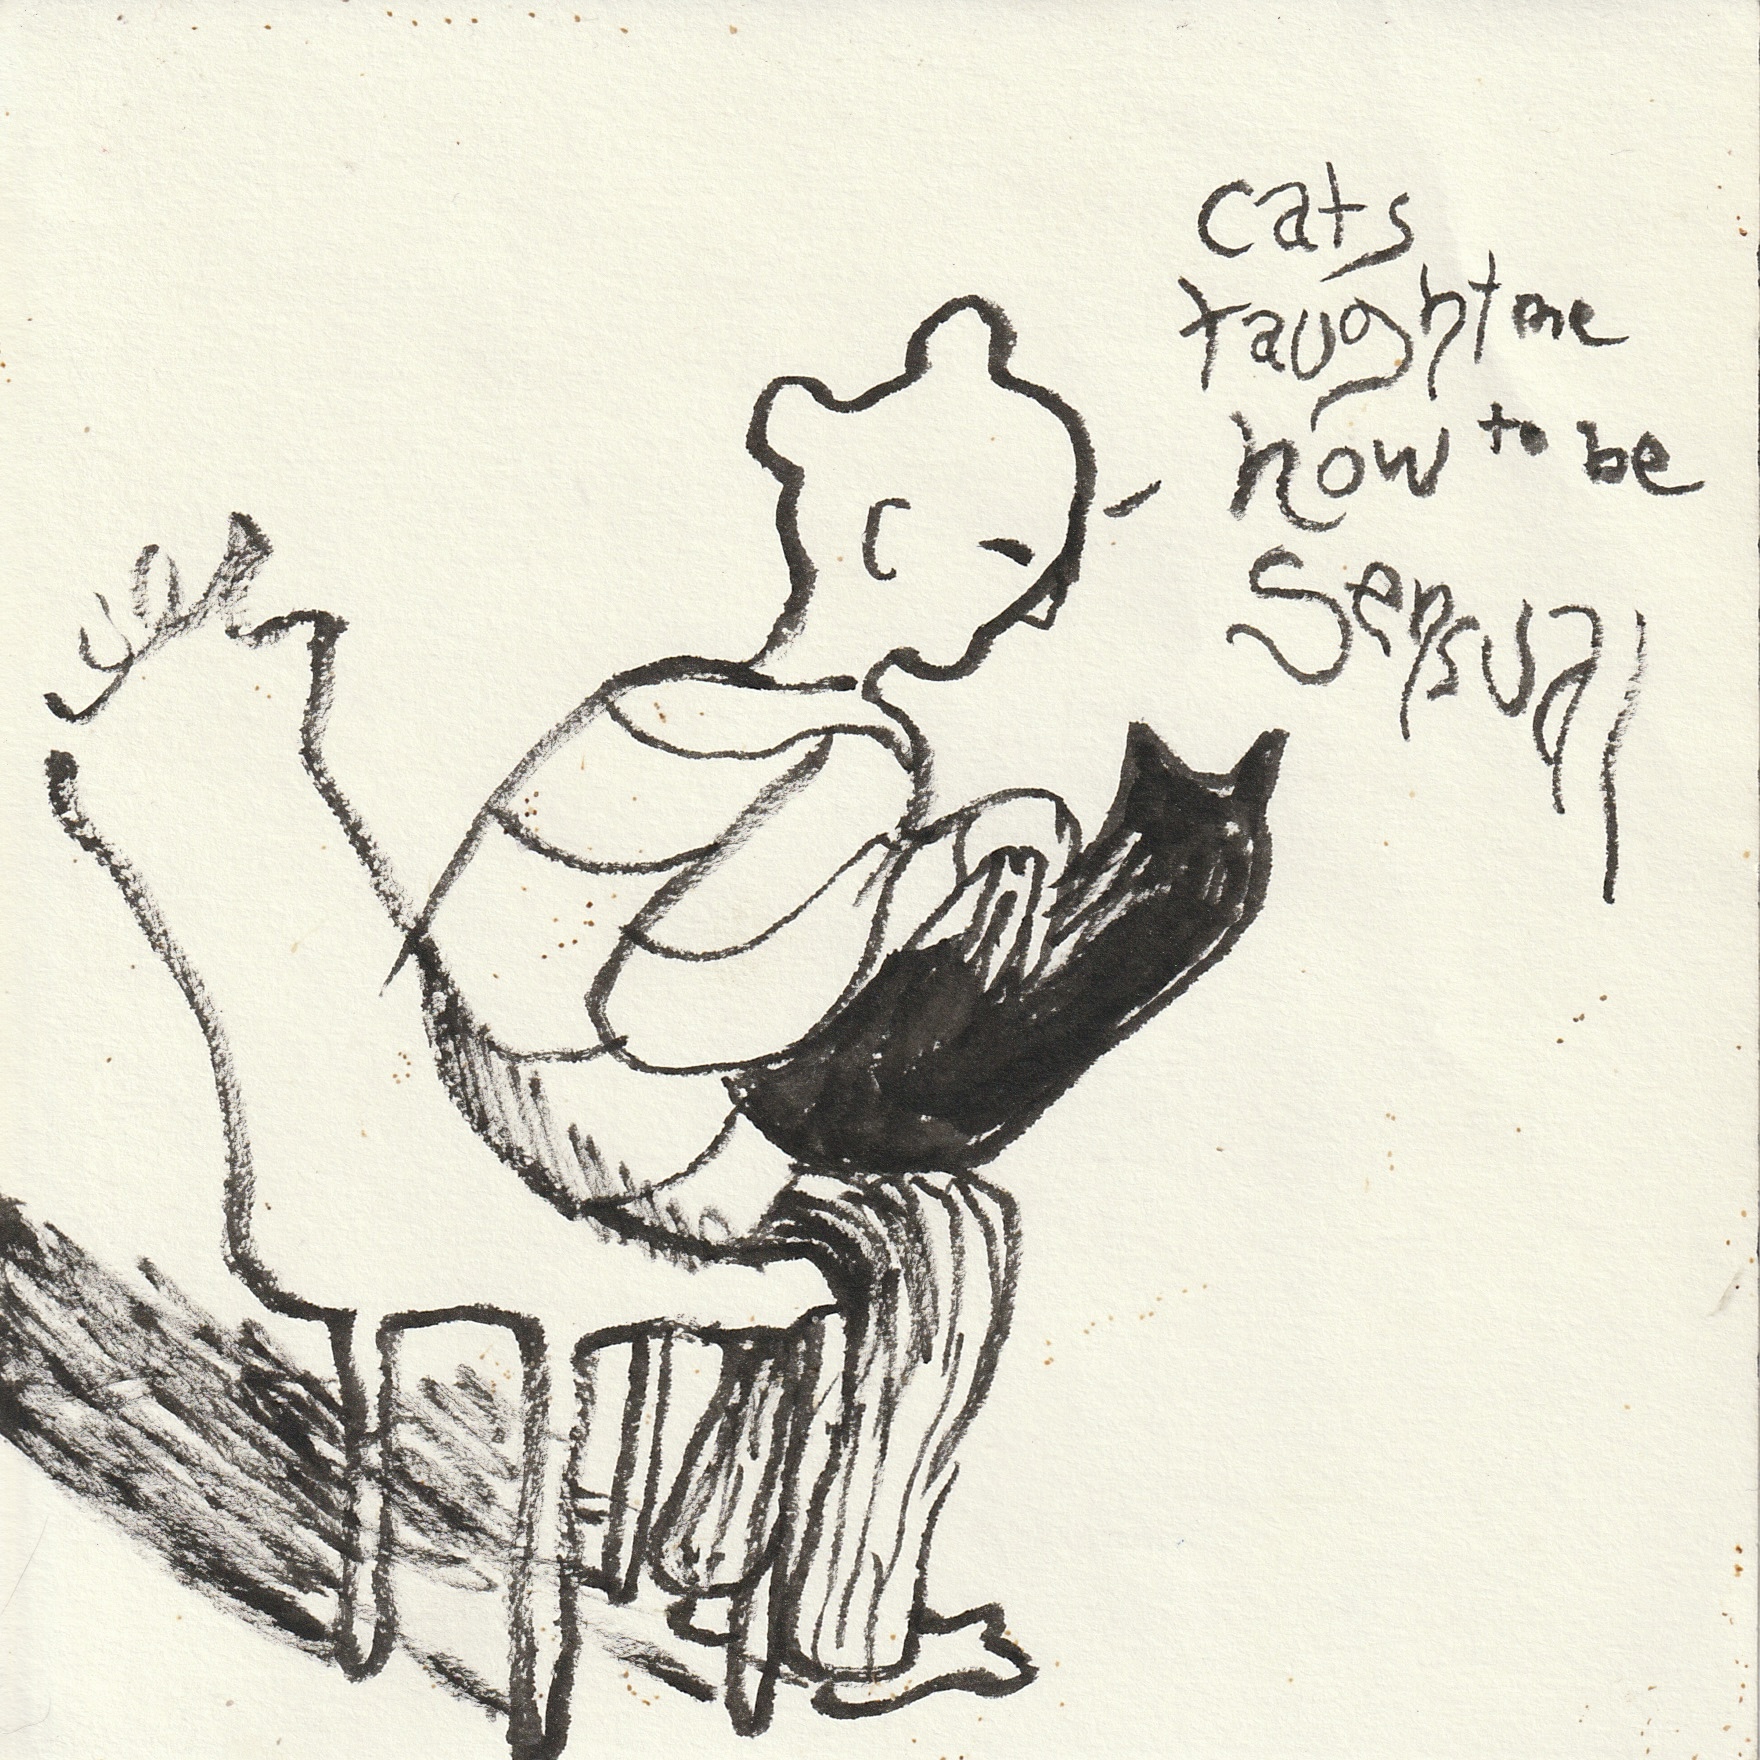 cats
taught me
how to be
sensual